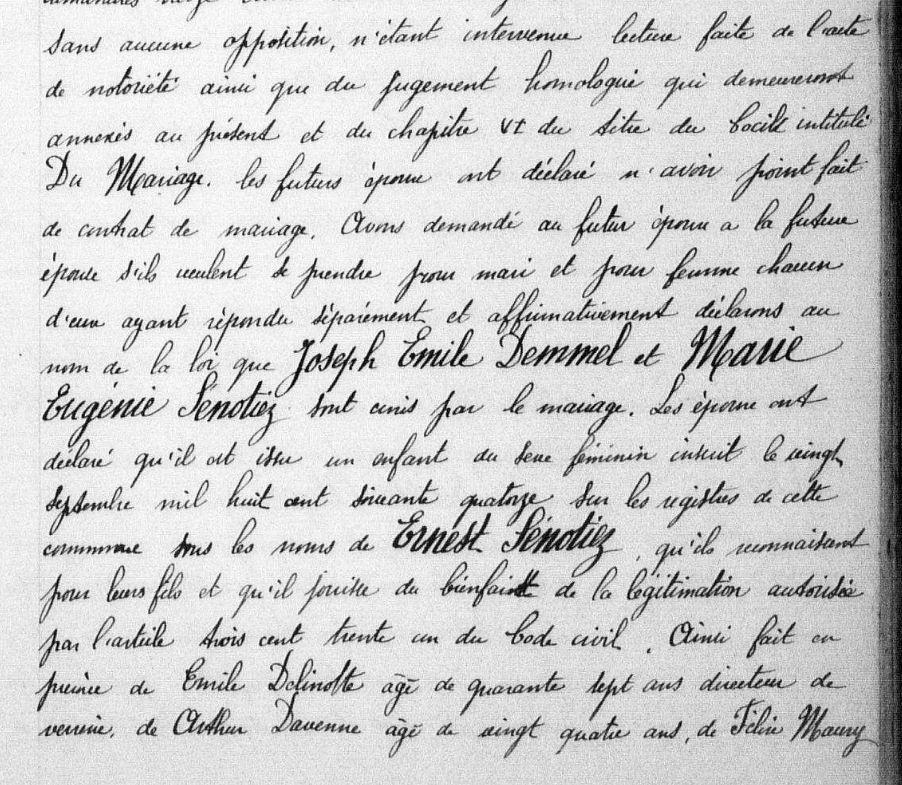 sans aucune opposition, n'étant intervenue lecture faite de l'acte
de notoriété ainsi que du jugement homologué qui demeureront
annexés au présent et du chapitre VI du titre du Cocik intitulé
Du Mariage. les futurs époux ont déclaré n'avoir point fait
de contrat de mariage. Avons demandé au futur époux a la future
épouse s'ils veulent se prendre pour mari et pour femme chacun
d'eux ayant répondu séparément et affirmativement déclarons au
nom de la loi que Joseph Emile Demmel et Marie
Eugénie Sénotiez sont unis par le mariage. Les époux ont
déclaré qu'il est issu un enfant du sexe féminin inscrit le vingt
septembre mil huit cent soixante quatorze sur les registres de cette
commune sous les noms de Ernest Sénotiez, qu'ils reconnaissent
pour leurs fils et qu'il jouisse du bienfait de la légitimation autorisée
par l'article trois cent trente un du Code civil. Ainsi fait en
présence de Emile Delinotte âgé de quarante sept ans directeur de
verrerie, de Arthur Davenne âgé de vingt quatre ans, de Félix Maury